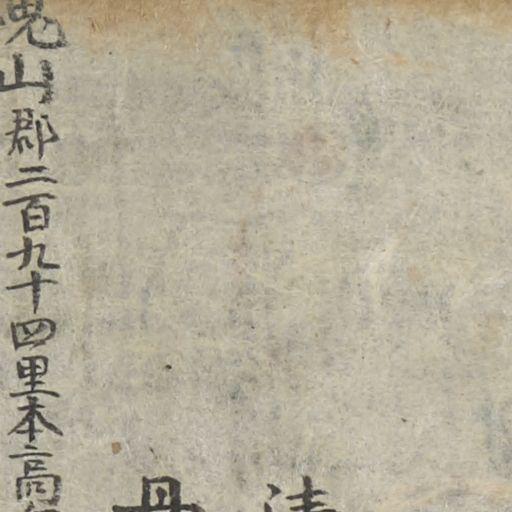 丹
槐山郡二百九十四里本高